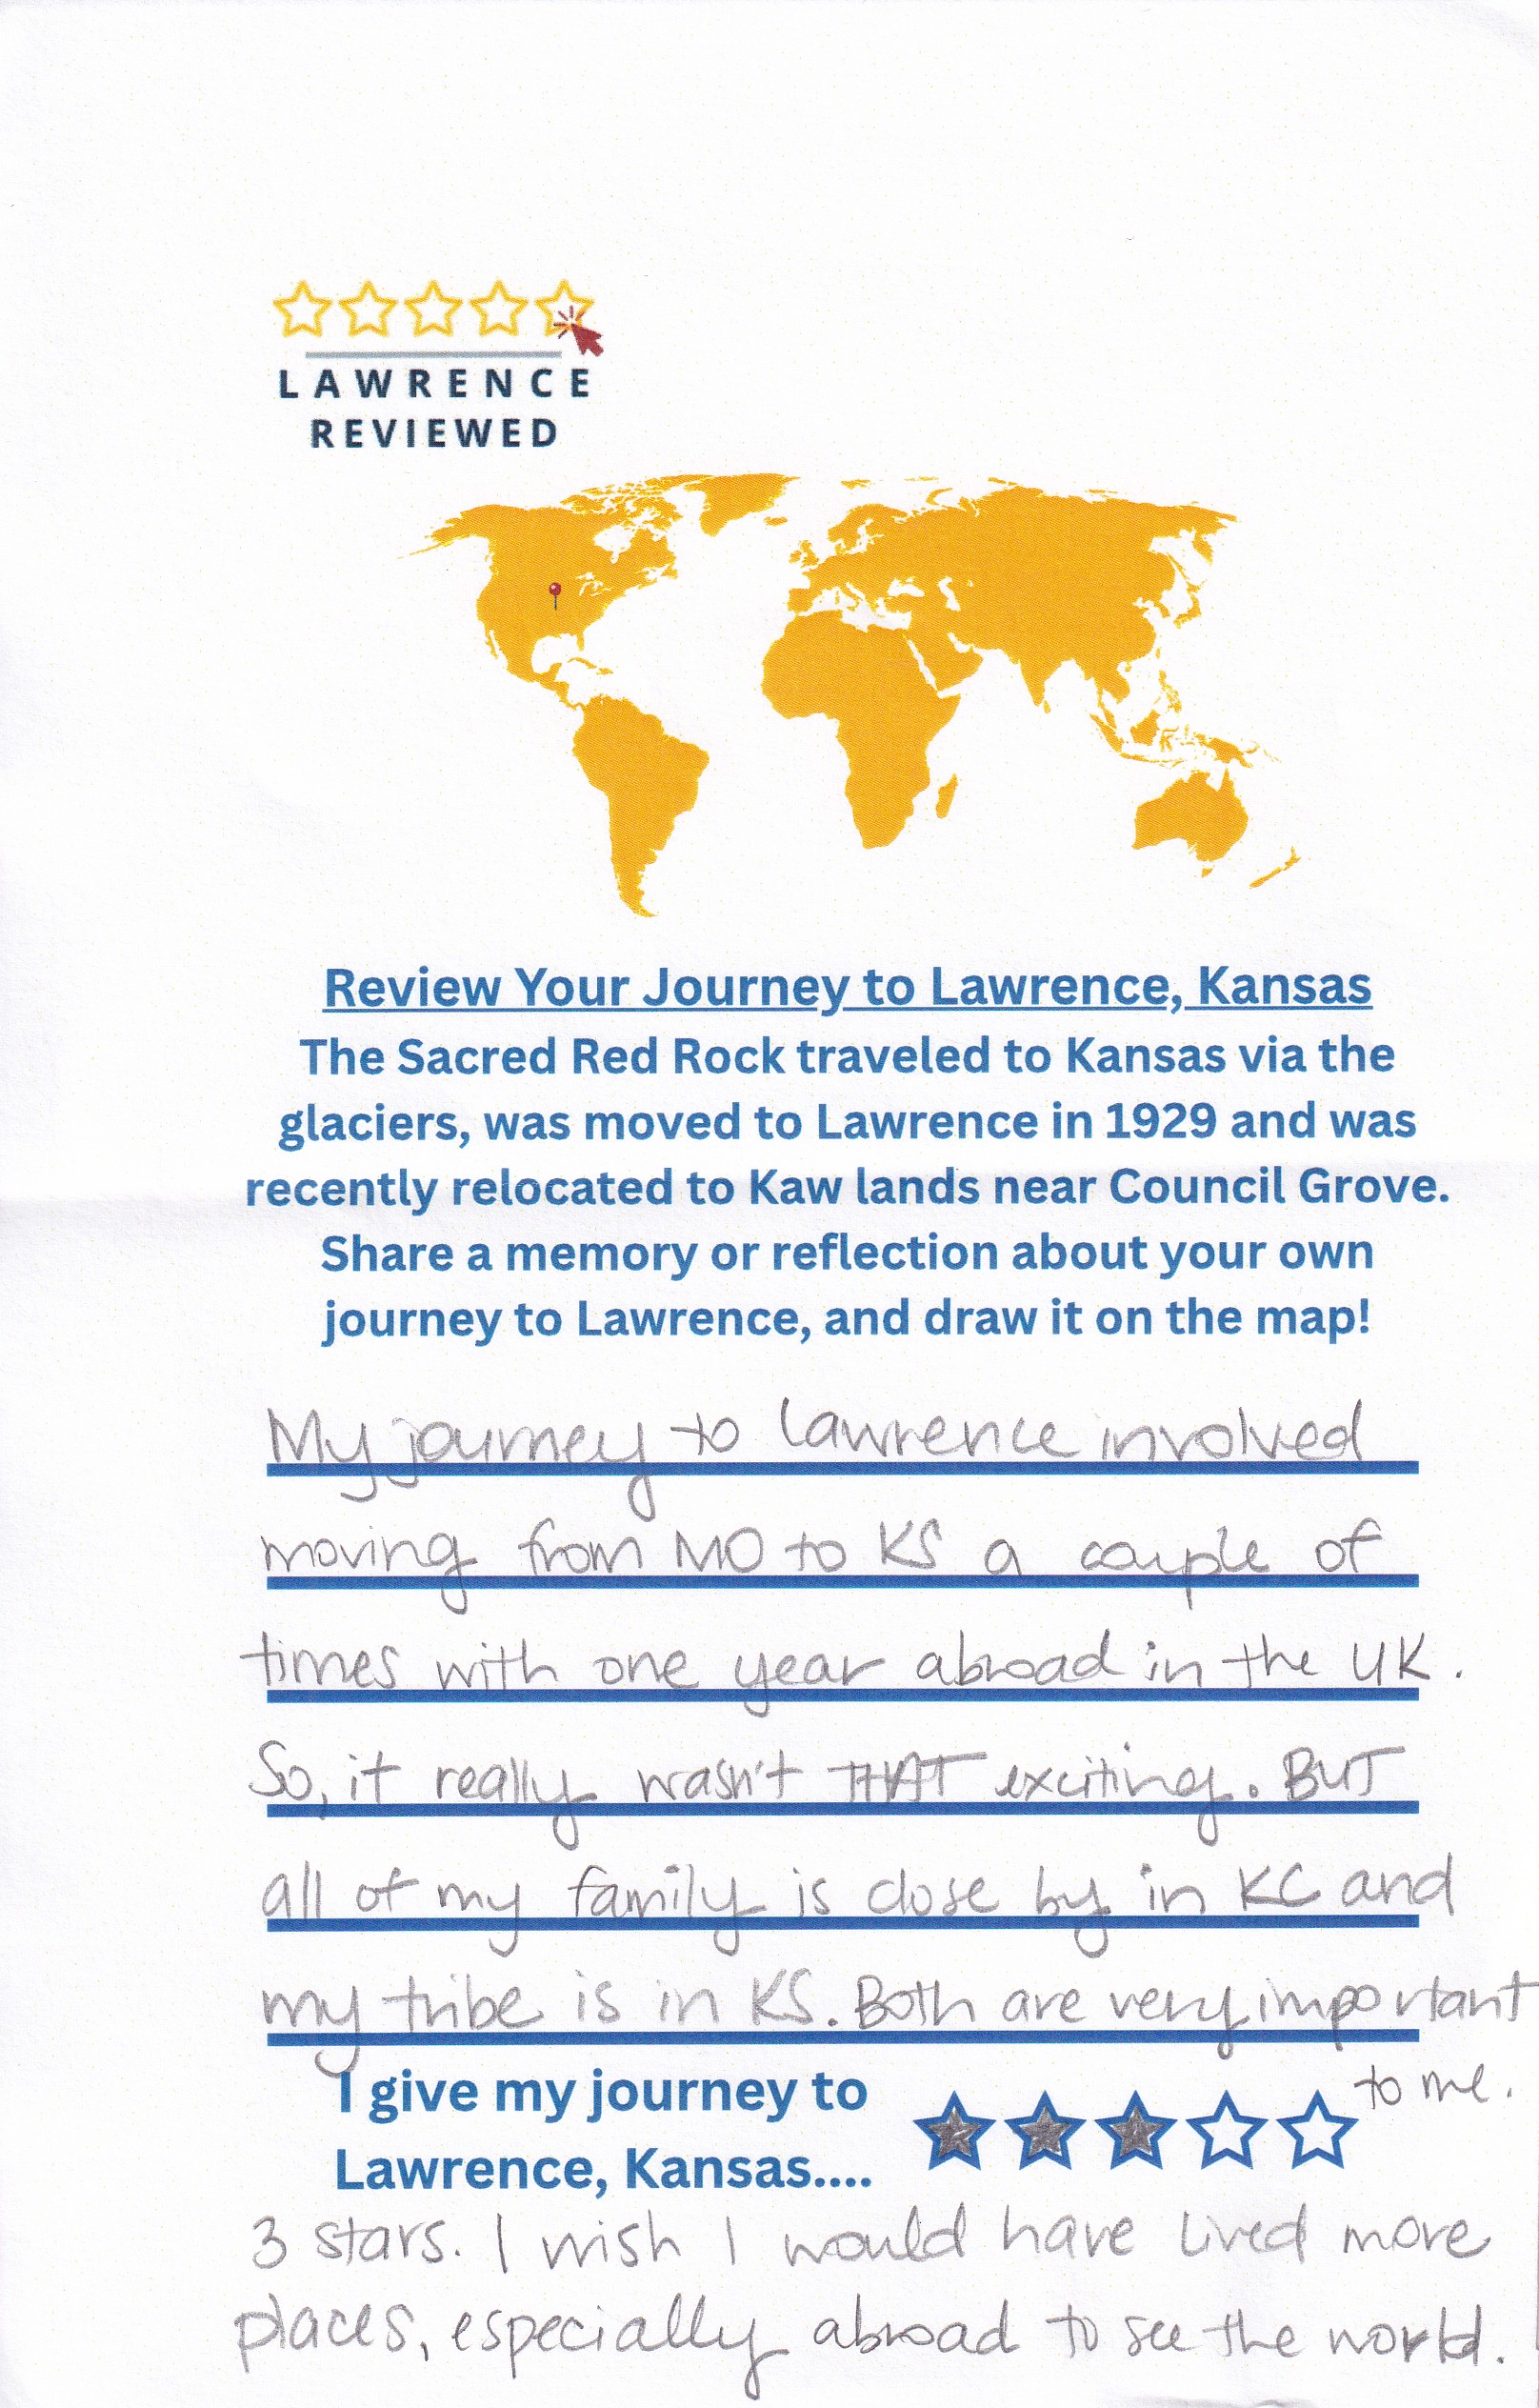 LAWRENCE
REVIEWED
Review Your Journey to Lawrence, Kansas
The Sacred Red Rock traveled to Kansas via the
glaciers, was moved to Lawrence in 1929 and was
recently relocated to Kaw lands near Council Grove.
Share a memory or reflection about your own
journey to Lawrence, and draw it on the map!
My journey to Lawrence involved
moving from MO to KS a couple of
times with one year abroad in the UK.
So, it really wasn't THAT exciting. BUT
all of my family is close by in KC and
my tribe is in KS. Both are very important
to me.
I give my journey to
Lawrence, Kansas....
3 stars. I wish I would have lived more
places, especially abroad to see the world.